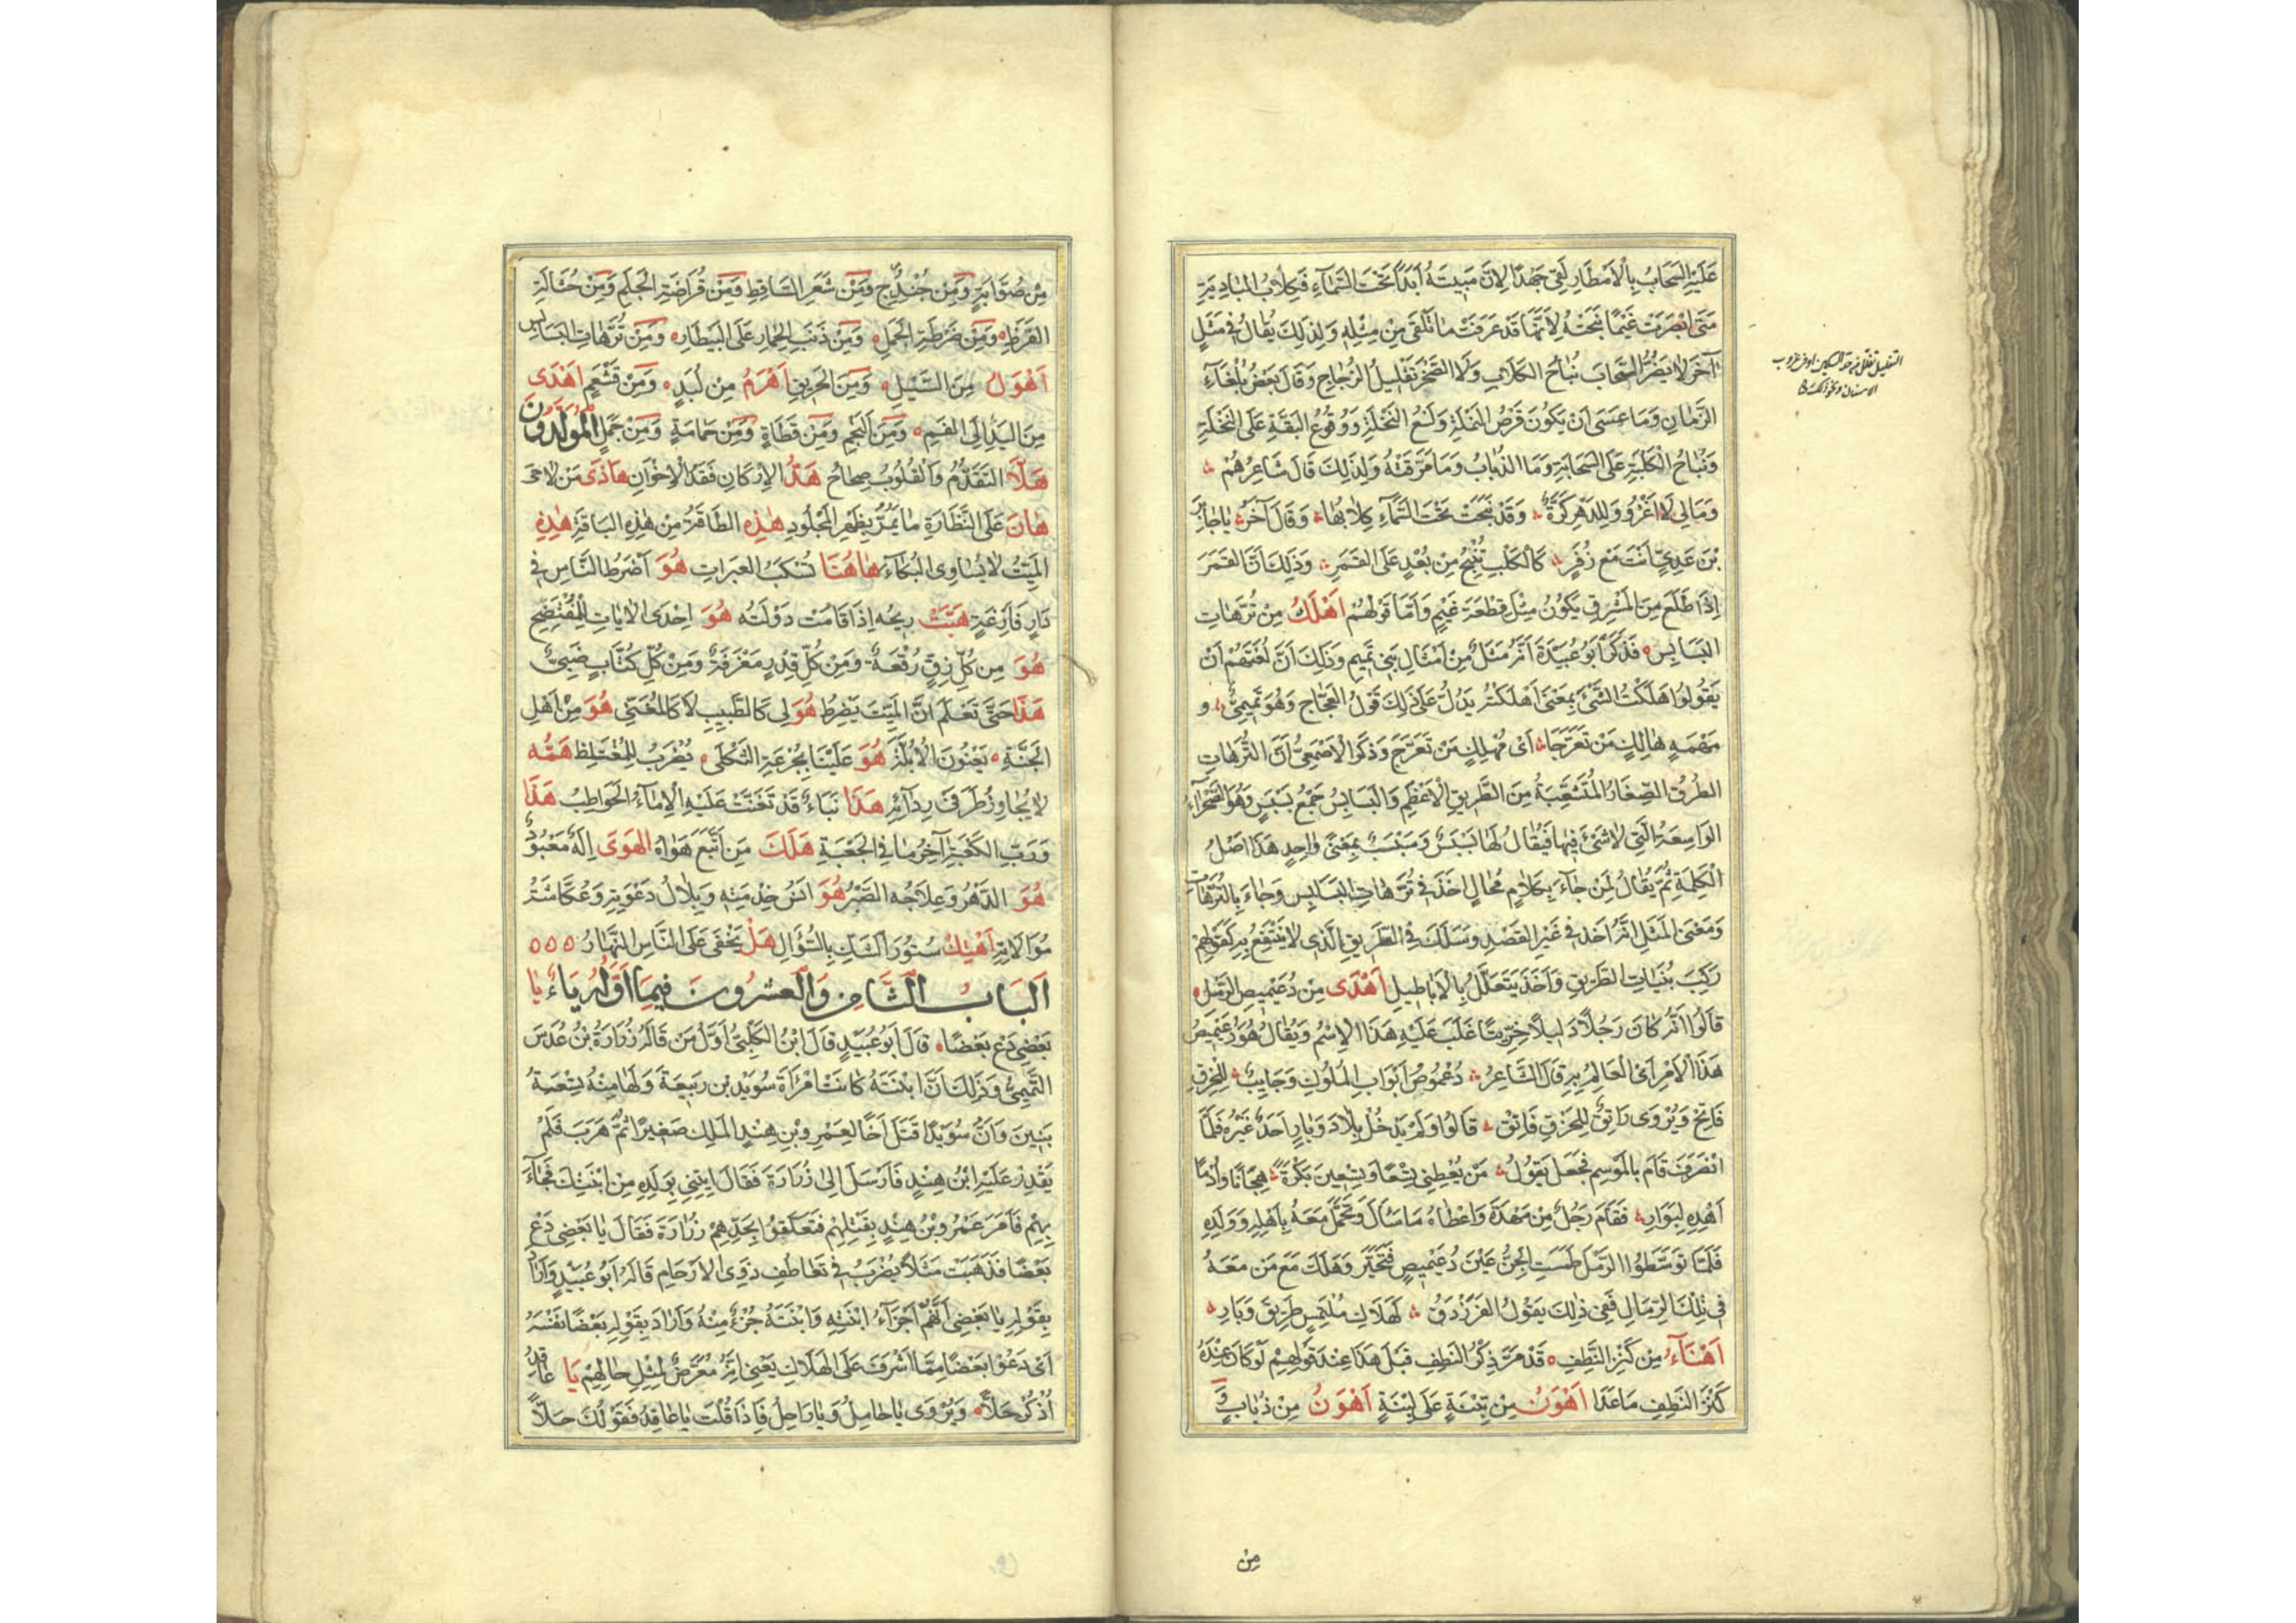 عَلَيْهِ السَّحَابُ بِالْأَمْطَارِ لَقِيَ جَهْدًا لِأَنَّ مَبِيتَهُ أَبَدًا تَحْتَ السَّمَآءِ فَكِلَابُ الْبَادِيَةِ
مَتَى أَبْصَرَتْ غَيْمًا نَبَحَتْهُ لِأَنَّهَا قَدْ عَرَفَتْ مَا تَلْقَى مِنْ مِثْلِهِ وَلِذٰلِكَ يُقَالُ فِي مَثَلٍ
آخَرَ لَا يَضُرُّ السَّحَابَ نُبَاحُ الْكِلَابِ وَلَا الصَّخْرَ تَفْلِيلُ الزُّجَاجِ وَقَالَ بَعْضُ بُلَغَآءِ
الزَّمَانِ وَمَا عَسَى أَنْ يَكُونَ قَرْصُ النَّمْلَةِ وَلَسْعُ النَّحْلَةِ وَوُقُوعُ الْبَقَّةِ عَلَى النَّخْلَةِ
وَنُبَاحُ الْكَلْبَةِ عَلَى السَّحَابَةِ وَمَا الذُّبَابُ وَمَا مَرَقَتُهُ وَلِذٰلِكَ قَالَ شَاعِرُهُمْ
وَمَالِي لَا أَغْزُو وَلِلدَّهْرِ كَرَّةٌ وَقَدْ نَبَحَتْ تَحْتَ السَّمَآءِ كِلَابُهَا وَقَالَ آخَرُ يَا جَابِرَ
بْنَ عَدِيٍّ أَنْتَ مَعَ زُفَرٍ كَالْكَلْبِ يُنْبِحُ مِنْ بُعْدٍ عَلَى الْقَمَرِ وَذٰلِكَ أَنَّ الْقَمَرَ
إِذَا طَلَعَ مِنَ الْمَشْرِقِ يَكُونُ مِثْلَ قِطْعَةِ غَيْمٍ وَأَمَّا قَوْلُهُمْ أَهْلَكُ مِنْ تُرَّهَاتِ
الْبَسَابِسِ فَذَكَرَ أَبُو عُبَيْدَةَ أَنَّهُ مَثَلٌ مِنْ أَمْثَالِ بَنِي تَمِيمٍ وَذٰلِكَ أَنَّ لُغَتَهُمْ أَنْ
يَقُولُوا هَلَكْتُ الشَّيْءَ بِمَعْنَى أَهْلَكْتُهُ يَدُلُّ عَلَى ذٰلِكَ قَوْلُ الْعَجَّاجِ وَهُوَ تَمِيمِيٌّ وَ
مَهْمَهٍ هَالِكِ مَنْ تَعَرَّجَا أَيْ مُهْلِكِ مَنْ تَعَرَّجَ وَذَكَرَ الْأَصْمَعِيُّ أَنَّ التُّرَّهَاتِ
الطُّرُقُ الصِّغَارُ الْمُتَشَعِّبَةُ مِنَ الطَّرِيقِ الْأَعْظَمِ وَالْبَسَابِسُ جَمْعُ بَسْبَسٍ وَهُوَ الصَّحْرَآءُ
الْوَاسِعَةُ الَّتِي لَا شَيْءَ فِيهَا فَيُقَالُ لَهَا بَسْبَسٌ وَسَبْسَبٌ بِمَعْنًى وَاحِدٍ هَذَا أَصْلُ
الْكَلِمَةِ ثُمَّ يُقَالُ لِمَنْ جَآءَ بِكَلَامٍ مُحَالٍ أَخَذَ فِي تُرَّهَاتِ الْبَسَابِسِ وَجَاءَ بِالتُّرَّهَاتِ
وَمَعْنَى الْمَثَلِ أَنَّهُ أَخَذَ فِي غَيْرِ الْقَصْدِ وَسَلَكَ فِي الطَّرِيقِ الَّذِي لَا يَنْتَفِعُ بِهِ كَقَوْلِهِمْ
رَكِبَ بُنَيَّاتِ الطَّرِيقِ وَأَخَذَ يَتَعَلَّلُ بِالْأَبَاطِيلِ أَهْدَى مِنْ دُعَيْمِيصِ الرَّمْلِ
قَالُوا أَنَّهُ كَانَ رَجُلًا دَلِيلًا خِرِّيتًا غَلَبَ عَلَيْهِ هَذَا الْإِسْمُ وَيُقَالُ هُوَ دُعَيْمِيصُ
هَذَا الْأَمْرِ أَيِ الْعَالِمُ بِهِ قَالَ الشَّاعِرُ دُعْمُوصُ أَبْوَابِ الْمُلُوكِ وَجَايِبٌ لِلْخَرْقِ
فَاتِحٌ وَيُرْوَى رَاتِقٌ لِلْخَرْقِ فَاتِقٌ قَالُوا وَلَمْ يَدْخُلْ بِلَادَ وَبَارِ أَحَدٌ غَيْرُهُ فَلَمَّا
انْصَرَفَ قَامَ بِالْمَوْسِمِ فَجَعَلَ يَقُولُ مَنْ يُعْطِنِي تِسْعًا وَتِسْعِينَ بَكْرَةً هِجَانًا وَأُدْمًا
أَهْدِهِ لِوَبَارِ فَقَامَ رَجُلٌ مِنْ مَهْرَةَ وَاعْطَاهُ مَا سَأَلَ وَتَحَمَّلَ مَعَهُ بِأَهْلِهِ وَوَلَدِهِ
فَلَمَّا تَوَسَّطُوا الرَّمْلَ طَمَسَتِ الْجِنُّ عَيْنَ دُعَيْمِيصٍ فَتَحَيَّرَ وَهَلَكَ مَعَ مَنْ مَعَهُ
فِي تِلْكَ الرِّمَالِ فَفِي ذٰلِكَ يَقُولُ الْفَرَزْدَقُ كَهَلَاكِ مُلْتَمِسٍ طَرِيقَ وَبَارِ
أَهْنَآءُ مِنْ كَنْزِ النَّطِفِ قَدْ مَرَّ ذِكْرُ النَّطِفِ قَبْلَ هَذَا عِنْدَ قَوْلِهِمْ لَوْ كَانَ عِنْدَهُ
كَنْزُ النَّطِفِ مَا عَدَا أَهْوَنُ مِنْ تِبْنَةٍ عَلَى لَبِنَةٍ أَهْوَنُ مِنْ ذُبَابٍ وَ
مِنْ
مِنْ صُؤَابَةٍ وَمِنْ حُنْدُجٍ وَمِنْ شَعَرِ السَّاقِطِ وَمِنْ قُرَاضَةِ الْجَلَمِ وَمِنْ حُثَالَةِ
الْقَرَظِ وَمِنْ ضَرْطَةِ الْجَمَلِ وَمِنْ ذَنَبِ الْحِمَارِ عَلَى الْبَيْطَارِ وَمِنْ تُرَّهَاتِ الْبَسَابِسِ
أَهْوَلُ مِنَ السَّيْلِ وَمِنَ الْحَرِيقِ أَهْرَمُ مِنْ لُبَدٍ وَمِنْ قَشْعَمٍ أَهْدَى
مِنَ الْيَدِ إِلَى الْفَمِ وَمِنَ النَّجْمِ وَمِنْ قَطَاةٍ وَمِنْ حَمَامَةٍ وَمِنْ جَمَلٍ الْمُوَلَّدُونَ
هَلَّا التَّقَدُّمُ وَالْقُلُوبُ صِحَاحُ هَدُّ الْأَرْكَانِ فَقْدُ الْإِخْوَانِ هَاذَى مَنْ لَاحَى
هَانَ عَلَى النَّظَّارَةِ مَا يَمُرُّ بِظَهْرِ الْمَجْلُودِ هٰذِهِ الطَّاقَةُ مِنْ هٰذِهِ الْبَاقَةِ هٰذِهِ
الْمَيِّتُ لَا يُسَاوِي الْبُكَآءَ هَاهُنَا تُسْكَبُ الْعَبَرَاتِ هُوَ أَضْرَطُ النَّاسِ فِي
دَارٍ فَارِغَةٍ هَبَّتْ رِيحُهُ إِذَا قَامَتْ دَوْلَتُهُ هُوَ إِحْدَى الْآيَاتِ لِلْمُفْتَضِحِ
هُوَ مِنْ كُلِّ زِقٍّ رُقْعَةٌ وَمِنْ كُلِّ قِدْرٍ مَغْرَفَةٌ وَمِنْ كُلِّ كُتَّابٍ صَبِيٌّ
هَذَا حَتَّى تَعْلَمَ أَنَّ الْمَيِّتَ يَضْرِطُ هُوَ لِي كَالطَّبِيبِ لَا كَالْمُغَنِّي هُوَ مِنْ أَهْلِ
الْجَنَّةِ يَعْنُونَ الْأَبْلَهَ هُوَ عَلَيْنَا بِجُرْعَةِ الثَّكْلَى يُضْرَبُ لِلْمُغْتَاظِ هَمُّهُ
لَا يُجَاوِزُ طَرَفَيْ رِدَآئِهِ هَذَا نَبَاءٌ قَدْ تَغَنَّتْ عَلَيْهِ الْإِمَآءُ الْحَوَاطِبُ هَذَا
وَرَبِّ الْكَعْبَةِ آخِرُ مَا فِي الْجَعْبَةِ هَلَكَ مَنِ اتَّبَعَ هَوَاهُ الْهَوَى إِلٰهٌ مَعْبُودٌ
هُوَ الدَّهْرُ وَعِلَاجُهُ الصَّبْرُ هُوَ أَنَسُ خِدْمَتِهِ وَبِلَالُ دَعْوَتِهِ وَعُكَّاشَةُ
مُوَالَاتِهِ أَهْتِكْ سُتُورَ الشَّكِ بِالسُّؤَالِ هَلْ يَخْفَى عَلَى النَّاسِ النَّهَارُ
الْبَابُ الثَّامِنُ وَالْعِشْرُونَ فِيمَا أَوَّلُهُ يَاءٌ يَا
بَعْضِي دَعْ بَعْضًا قَالَ أَبُو عُبَيْدٍ قَالَ ابْنُ الْكَلْبِيِّ أَوَّلُ مَنْ قَالَهُ زُرَارَةُ بْنُ عُدَسَ
التَّمِيمِيُّ وَذٰلِكَ أَنَّ ابْنَتَهُ كَانَتْ امْرَأَةَ سُوَيْدِ بْنِ رَبِيعَةَ وَلَهَا مِنْهُ تِسْعَةُ
بَنِينَ وَأَنَّ سُوَيْدًا قَتَلَ أَخًا لِعَمْرِو بْنِ هِنْدٍ الْمَلِكِ صَغِيرًا ثُمَّ هَرَبَ فَلَمْ
يَقْدِرْ عَلَيْهِ ابْنُ هِنْدٍ فَأَرْسَلَ إِلَى زُرَارَةَ فَقَالَ ايتِنِي بِوَلَدِهِ مِنْ ابْنَتِكَ فَجَآءَ
بِهِمْ فَأَمَرَ عَمْرُو بْنُ هِنْدٍ بِقَتْلِهِمْ فَتَعَلَّقُوا بِجَدِّهِمْ زُرَارَةَ فَقَالَ يَا بَعْضِي دَعْ
بَعْضًا فَذَهَبَتْ مَثَلًا يُضْرَبُ فِي تَعَاطُفِ ذَوِي الْأَرْحَامِ قَالَهُ أَبُو عُبَيْدٍ وَأَرَادَ
بِقَوْلِهِ يَا بَعْضِي أَنَّهُمْ أَجْزَآءُ ابْنَتِهِ وَابْنَتُهُ جُزْءٌ مِنْهُ وَأَرَادَ بِقَوْلِهِ بَعْضًا نَفْسَهُ
أَيْ دَعُوا بَعْضًا مِمَّا أَشْرَفَ عَلَى الْهَلَاكِ يَعْنِي إِنَّهُ مُعَرَّضٌ لِمِثْلِ حَالِهِمْ يَا عَاقِدُ
اُذْكُرْ حَلًّا وَيُرْوَى يَا حَامِلُ وَيَا رَاحِلُ فَإِذَا قُلْتَ يَا عَاقِدُ فَقَوْلُكَ حَلًّا